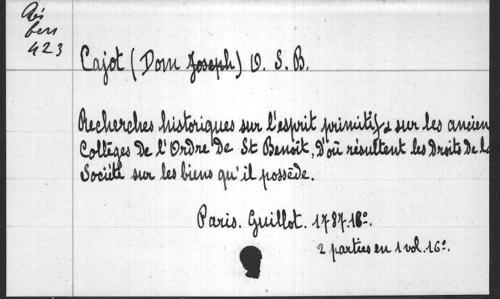 Rés
bers
423
Cajot (Dom Joseph) O. S. B.
Recherches historiques sur l'esprit primitif & sur les ancien
Collèges de l'Ordre de St Benoît, d'où résultent les droits de la
Société sur les biens qu'il possède.
Paris. Guillot. 1787. 18º.
2 parties en 1 vol. 16º.